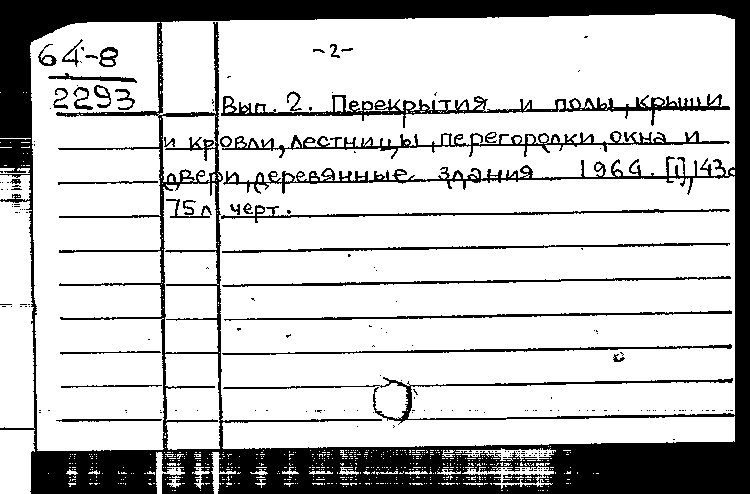 64-8
-2-
2293
Вып. 2. Перекрытия и полы, крыши
и кровли, лестницы, перегородки, окна и
двери, деревянные здания 1964. [1], 143с
75 л черт.